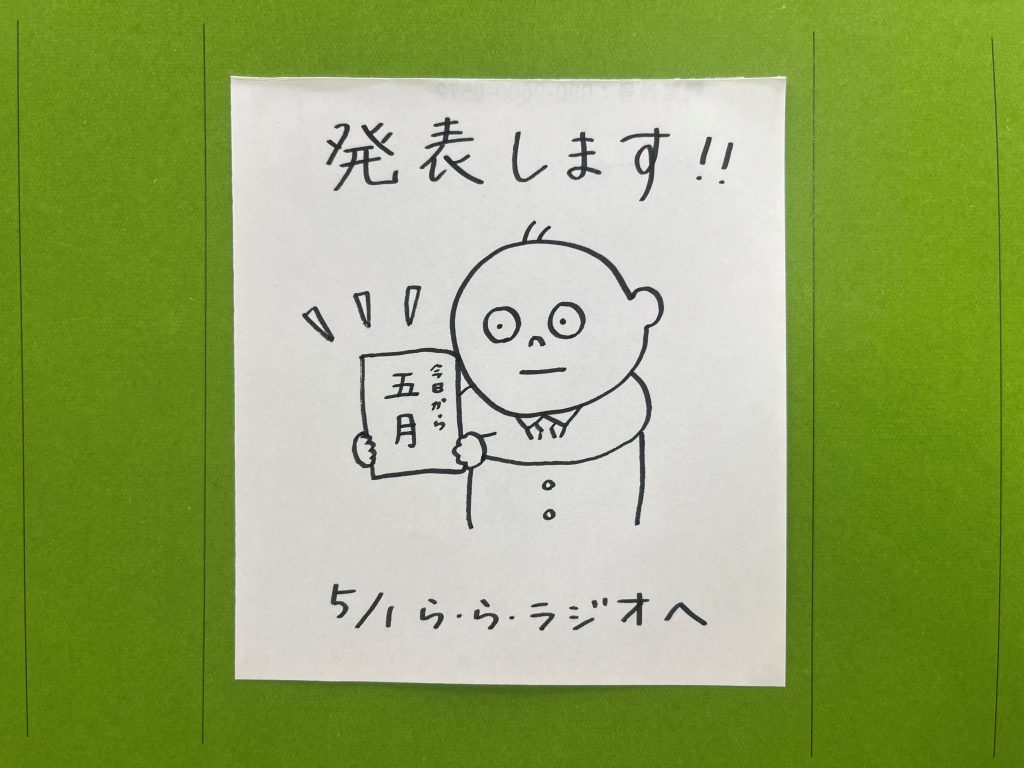 発表します!!
今日から
五月
5/1 ら・ら・ラジオへ